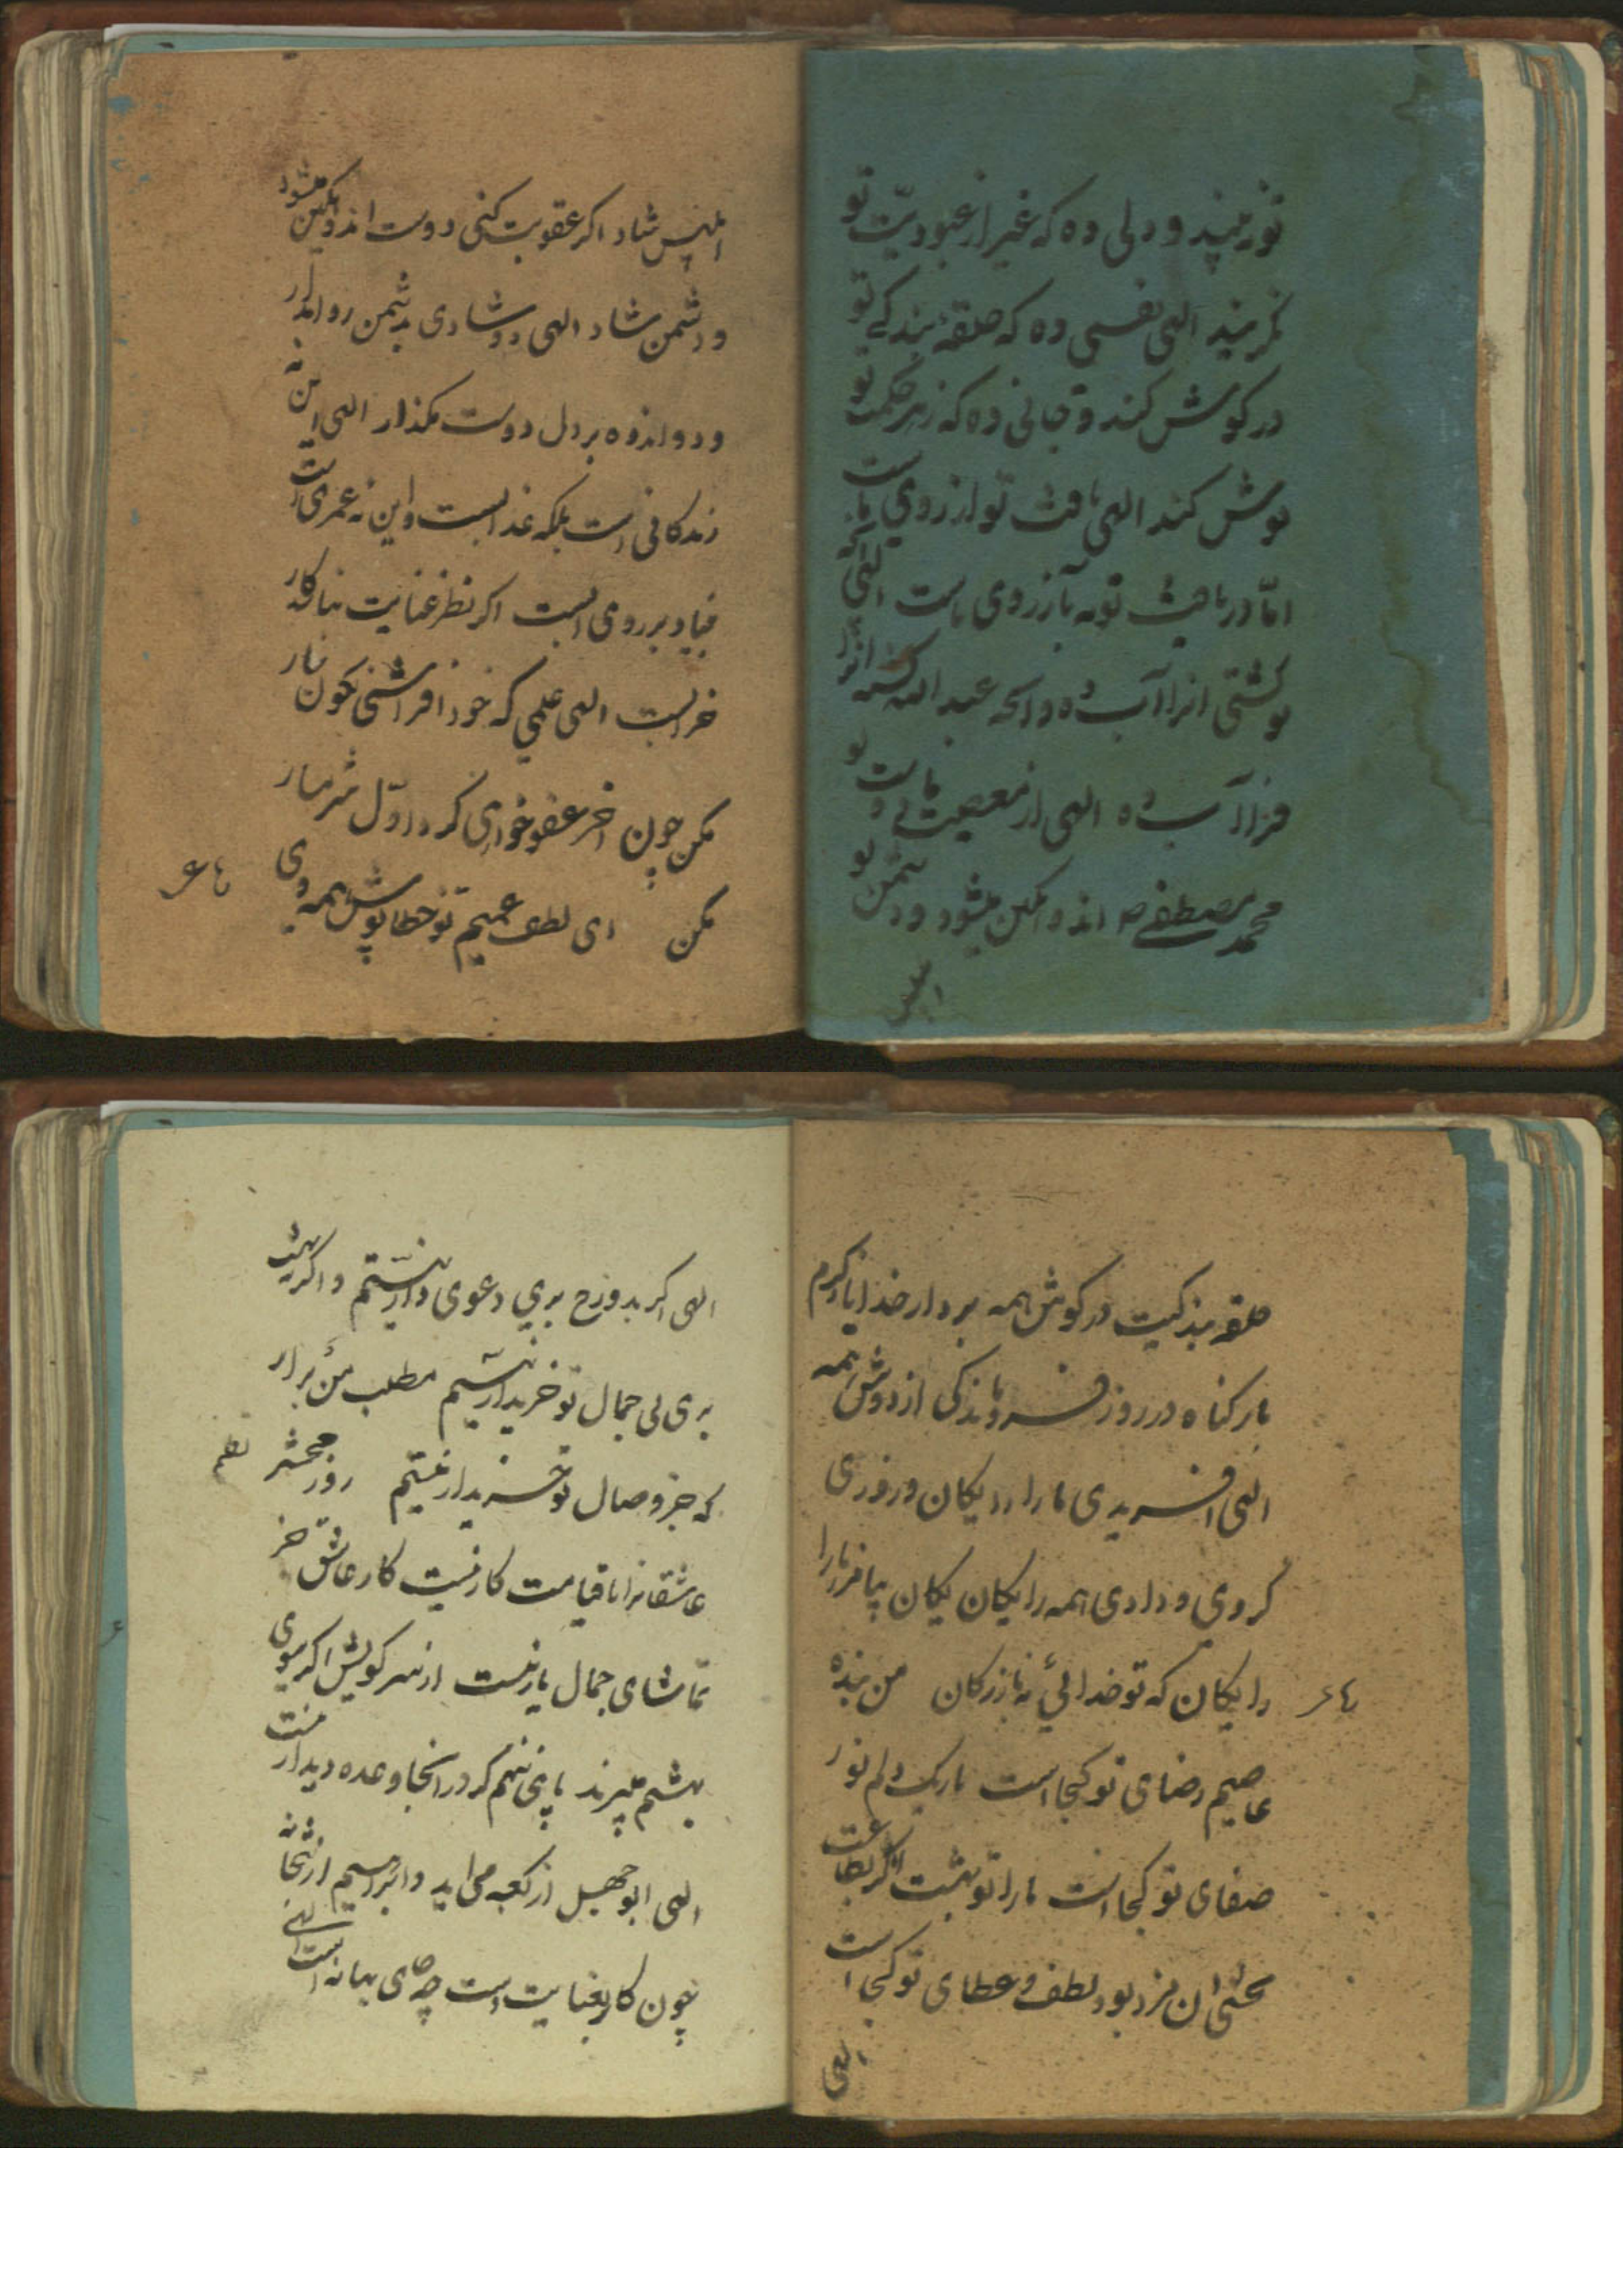 تو نه بیند و دلی ده که غیر از عبودیت تو
نگزیند الهی نفسی ده که حلقه بندگی تو
در کوش کند و جانی ده که زهر حکمت تو
نوش کند الهی یافت تو ارزوی ماست
اما دریافت تو نه بازروی ماست الهی انچه
تو کشتی انرا آب ده وانچه عبد الله کشته
آب ده الهی از معصیت ما دوست تو
محمد مصطفی ص اندوهکین میشود و دشمن تو
ابلیس
ابلیس شاد اکر عقوبت کنی دوست اندوهکین میشود
و دشمن شاد الهی دو شادی بدشمن روا مدار
و دو اندوه بر دل دوست مکذار الهی این نه
زندکانی است بلکه عذابست و این نه عمری است
بنیاد بر روی ابست اکر نظر عنایت نباشد کار
خرابست الهی علمی که خود افراشتی نکون سار
مکن چون اخر عفو خواهی کرد اول شرمسار
مکن ای لطف عمیم تو خطاپوش همه وی
رباعی
حلقه بندکیت در کوش همه بردار خدایا ز کرم
بار کناه در روز فروماندکی از دوش همه
الهی افریدی ما را رایکان و روزی
کردی و دادی همه رایکان رایکان بیامرز ما را
رایکان که تو خدائی نه بازرکان من بنده
رباعی
عاصیم رضای تو کجا است تاریک دلم نور
صفای تو کجا است ما را تو بهشت اکر بطاعت
بخشی ان مزد بود لطف و عطای تو کجا است
الهی
الهی اکر بدوزخ بری دعوی دار نیستم و اکر بهشت
بری بی جمال تو خریدار نیستم مطلب من برار
که جز وصال تو خریدار نیستم روز محشر
نظم
عاشقانرا با قیامت کار نیست کار عاشق جز
تماشای جمال یار نیست از سر کویش اکر سوی
بهشتم میبرند پای ننهم کر در انجا وعده دیدار نیست
الهی ابو جهل از کعبه می اید و ابراهیم از بتخانه
چون کار بعنایت است چه جای بهانه است الهی